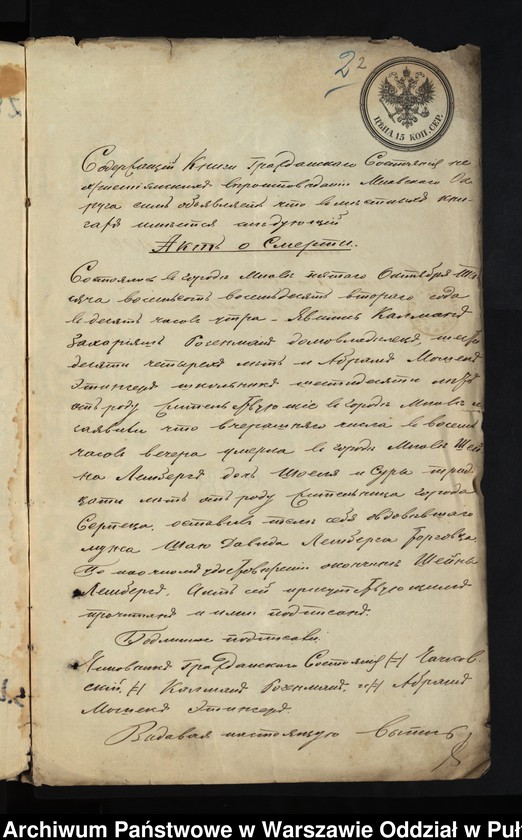 22
ЦѢНА 15 КОП. СЕР.
Содержащій Книги Гражданскаго Состоянія не
христіанских вѣроисповѣданій Млавскаго Ок
руга симъ объявляетъ что въ мѣстныхъ кни
гахъ имѣется слѣдующій
Актъ о Смерти.
Состоялось въ городѣ Млавѣ пятаго Октября Ты
сяча восемьсотъ восемьдесятъ втораго года
въ десять часовъ утра – Явились Калманъ
Захаріяшъ Розенманъ домовладѣлецъ шесть
десяти четырехъ лѣтъ и Абрамъ Мошекъ
Этингеръ школьникъ шестидесяти лѣтъ
отъ роду жительствующіе въ городѣ Млавѣ и
заявили что вчерашняго числа въ восемь
часовъ вечера умерла въ городѣ Млавѣ Шей
на Лембергъ дочь и Суры трид
цати лѣтъ отъ роду жительница города
Серпеца, оставивъ послѣ себя овдовѣвшаго
мужа Шаю Давида Лемберга торговца.
По наочномъ удостовѣреніи о кончинѣ Шейны
Лембергъ, Актъ сей присутствующимъ
прочитанъ и ими подписанъ.
Подлинное подписали:
Чиновникъ Гражданскаго Состоянія (-)
скій, (-) Калманъ Розенманъ, (-) Абрамъ
Мошекъ Этингеръ.
Выдавая настоящую
Archiwum Państwowe w Warszawie Oddział w Puł